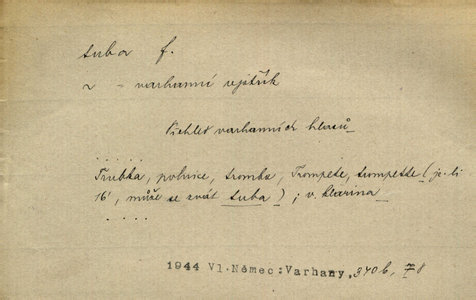 tuba f.
~ - varhanní rejstřík
Přehled varhanních hlasů
. . . . .
Trubka, polnice, tromba, Trompete, trompette (je-li
16', může se zvát tuba); v. klarina
. . . . .
1944 Vl.Němec:Varhany, 340b, 78